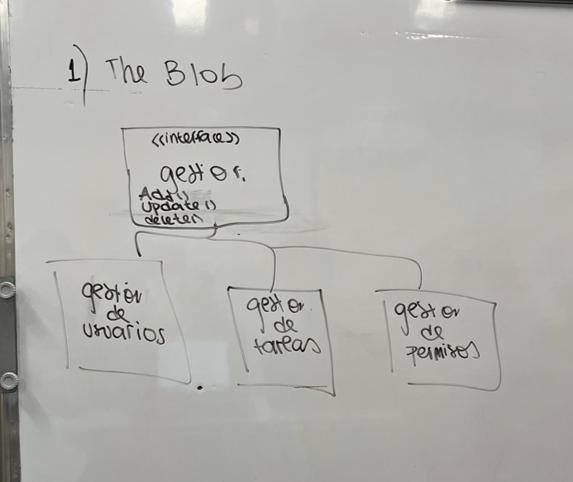 1) The Blob
<<interface>>
gestor.
Add()
update()
delete()
gestor
de
usuarios
gestor
de
tareas
gestor
de
permisos